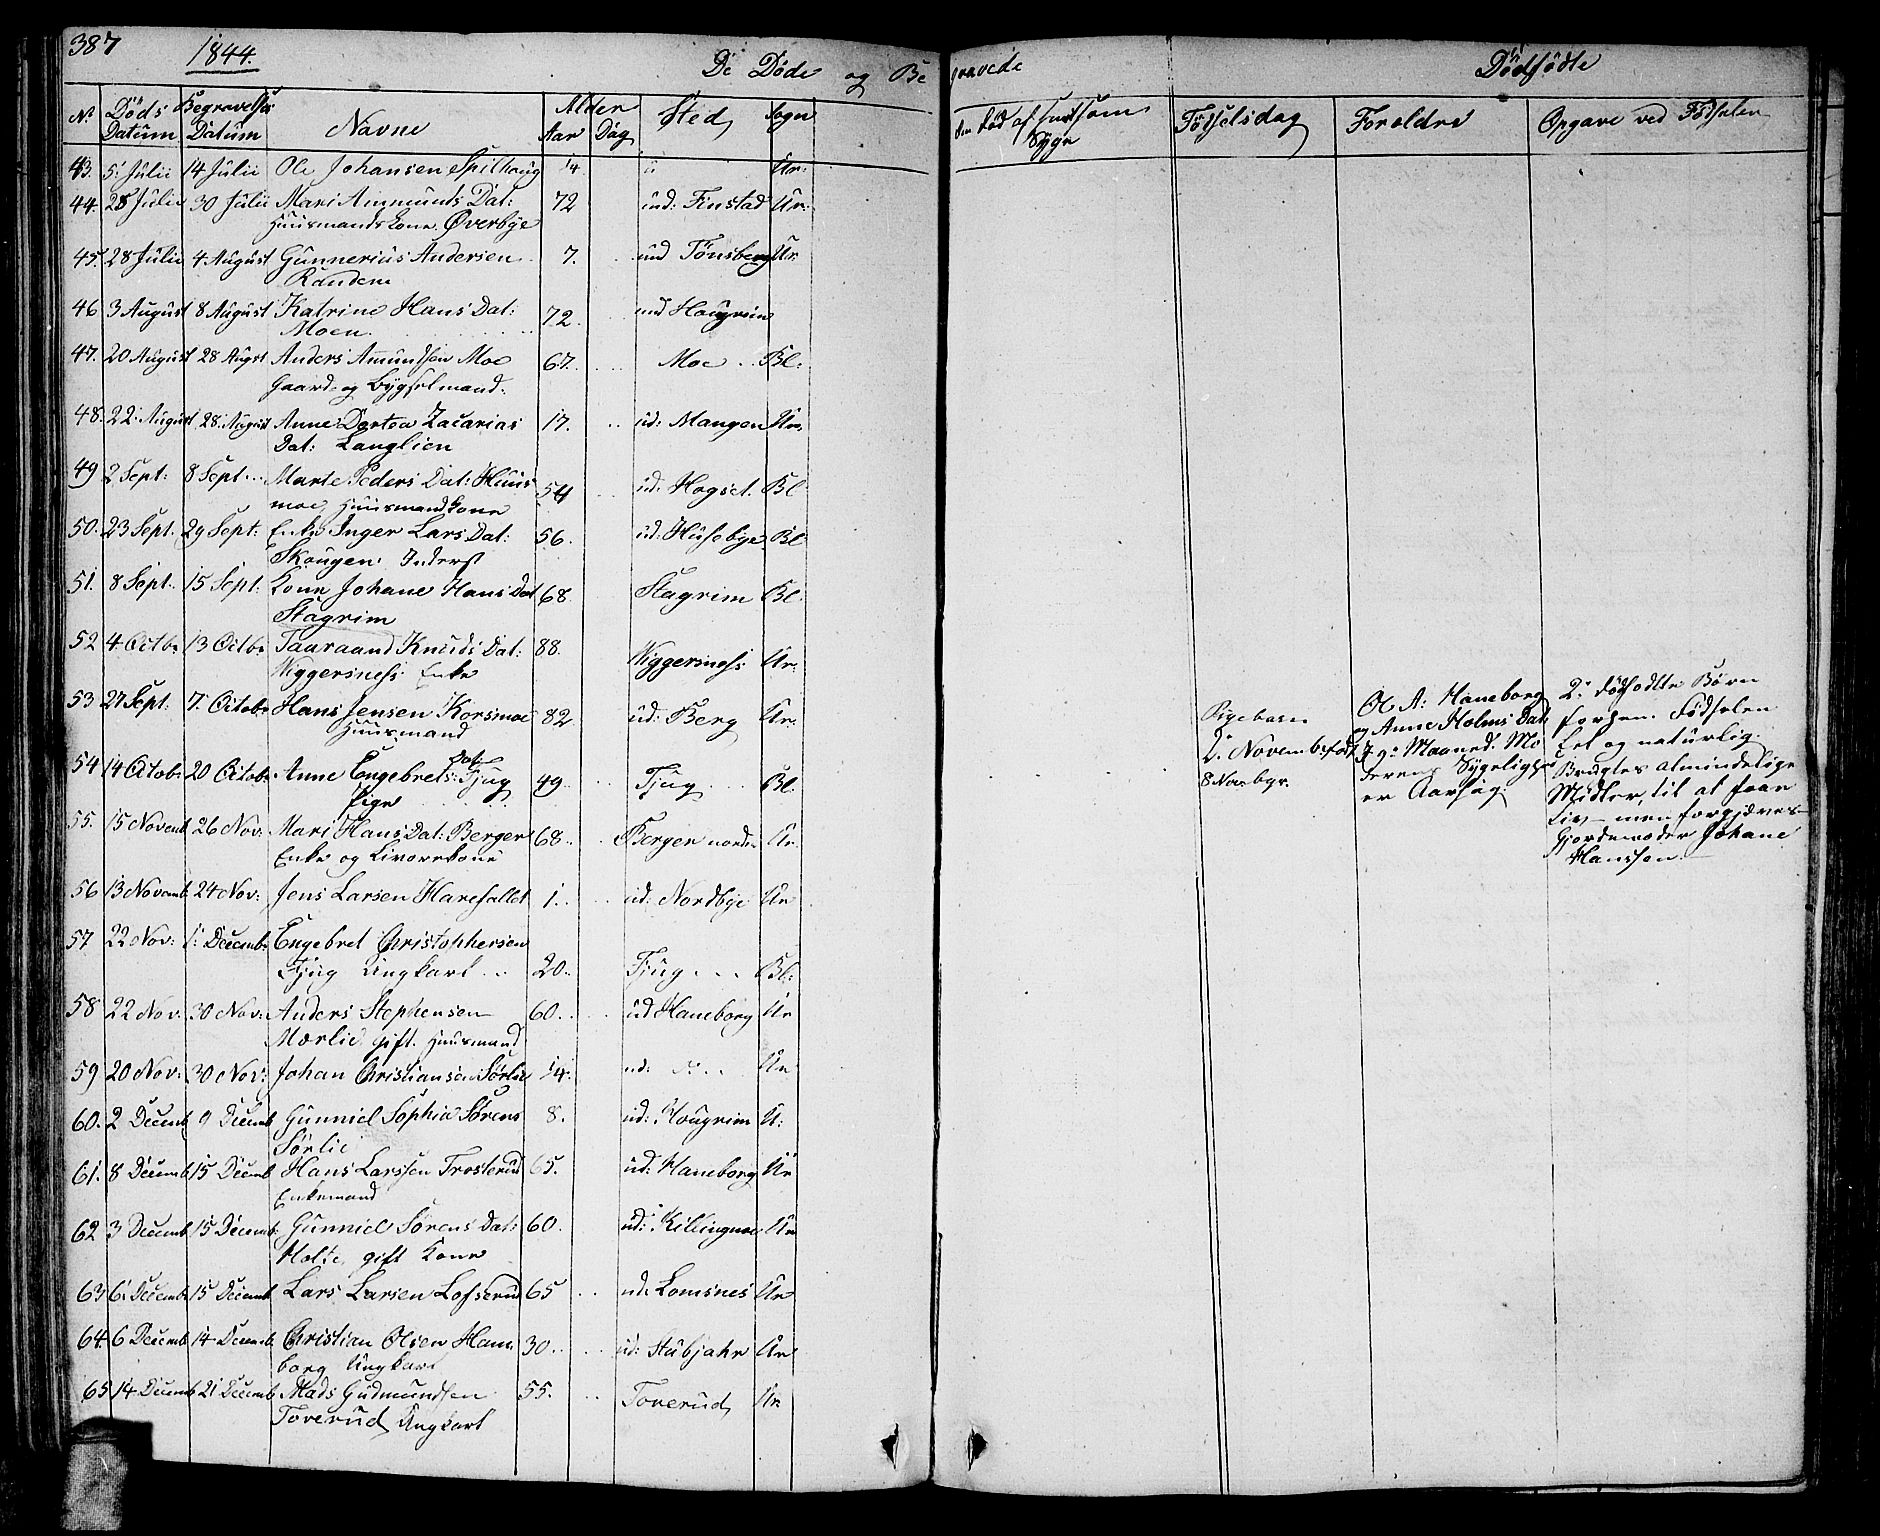 387 1844. De Døde og Begravede Dødfødte
No Døds Datum Begravelses Datum Navne Alder Aar Dag Sted Sogn Syge Fødselsdag Foreldre Opgave ved Fødselen
43. 5. Julii 14 Julii Ole Johansen Spilhoug 14. Ur:
44. 28 Julii 30 Julii Mari Ammunds Dat: 72 und: Finstad Ur:
Huusmandskone Øverbye
45. 28 Julii 4 August Gunnerius Andersen 7. und Tönsberg Ur.
Randem
46 3 August 8 August Katrine Hans Dat: 72. und Hougrim
Moen.
47. 20 August 28 Augst Anders Amundsen Moe 67. Moe Bl:
Gaard og Bygselmand.
48. 22. August 28. August Anne Dortea Zacarias 17. ud: Mangen Ur.
Dat: Langlien
49 2 Sept: 8 Sept Marte Peders Dat: Huus 54 ud: Hogset. Bl
moe, Huusmandkone
50. 23 Sept. 29 Sept: Enke Inger Lars Dat: 56. ud: Husebye Bl
Skougen: Inderst
51. 8 Sept. 15 Sept: Kone Johane Hans Dat 68 Stagrim Bl.
Stagrim
52 4 Octbr 13 Octbr Taaraand Knuds Dat: 88. Wiggersness Ur:
Wiggersness Enke
53 27 Sept. 7. Octobr Hans Jensen Korsmoe 82 ud: Berg Ur:
Huusmand
54 14 Octobr 20 Octobr Anne Engebrets Dat Tjug 49 Tjug Bl.
Pige
55. 15 Novemb 26 Nov: Mari Hans Dat: Berger 68. Berger nordre Ur.
Enke og Livørekone
56 13 Novemb. 24 Nov: Jens Larsen Harefallet 1. ud: Nordbye Ur
57 22 Nov: 1. Decemb: Engebret Christophersen
Tjug Ungkarl 20. Tjug Bl:
58 22 Nov: 30 Nov: Anders Stephensen 60. ud Haneborg Ur
Mærlie, gift. Huusmand
59 20 Nov: 30 Nov: Johan Christiansen Sørlie 14. ud: Ur
60. 2 Decemb 9 Decemb Gunniel Sophia Sørens 8. ud: Hougrim U:
Sørlie
61. 8 Decemb 15 Decemb Hans Larssen Trosterud 65. ud: Haneborg Ur
Enkemand
62 3 Decemb 15 Decemb: Gunniel Sørens Dat: 60. ud: Killingmoe Ur
Holte, gift Kone
63 6. Decemb 15 Decemb Lars Larsen Lofserud 65 ud: Lomsnes Ur
64. 6 Decemb 14 Decemb Christian Olsen Hane 30. ud: Stubjahr Ur
borg Ungkarl
65 14 Decemb 21 Decemb Mads Gudmundsen 55. Toverud Ur
Toverud Ungkarl
Pigebarn
2. Novemb: født
8 Novbr.
Ol A: Haneborg
og Anne Holms Dat.
I 9de Maaned. Mo
derens Sygelighed
er Aarsag.
2. dødfødte Børn
forhen. Fødselen
let og naturlig.
Brugtes almindelige
Midler, til at faae
Liv men forgjeves
Gjordemoder Johane
Hanssen.